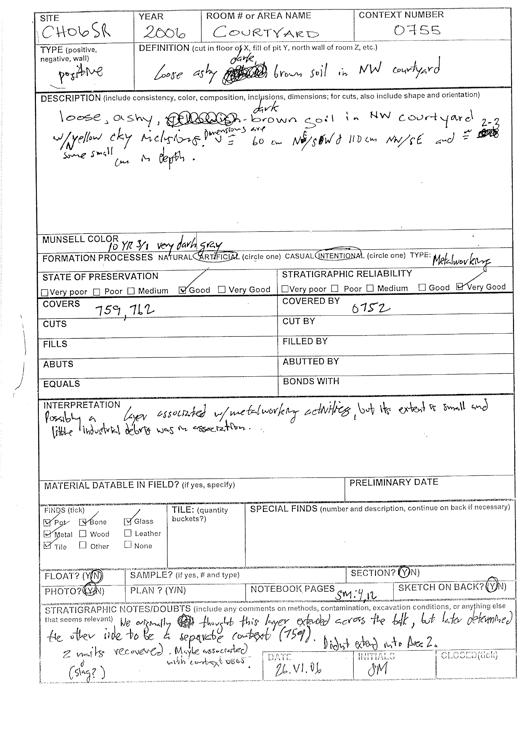 SITE YEAR ROOM # OR AREA NAME CONTEXT NUMBER
CH06SR 2006 COURTYARD 0755
TYPE (positive, negative, wall) DEFINITION (cut in floor of X, fill of pit Y, north wall of room Z, etc.)
positive loose ashy dark brown soil in NW courtyard
DESCRIPTION (include consistency, color, composition, inclusions, dimensions; for cuts, also include shape and orientation)
loose, ashy, dark-brown soil in NW courtyard
w/ yellow clay inclusions. Dimensions are ≈ 60 cm NE/SW & 110 cm NW/SE and ≈ 2-3
some small cm in depth.
MUNSELL COLOR 10 YR 3/1 very dark gray
FORMATION PROCESSES NATURAL/ARTIFICIAL (circle one) CASUAL/INTENTIONAL (circle one) TYPE: Metalworking
STATE OF PRESERVATION STRATIGRAPHIC RELIABILITY
Very poor Poor Medium Good Very Good Very poor Poor Medium Good Very Good
COVERS 759, 762 COVERED BY 0752
CUTS CUT BY
FILLS FILLED BY
ABUTS ABUTTED BY
EQUALS BONDS WITH
INTERPRETATION
Possibly a layer associated w/ metalworking activities, but its extent is small and
little industrial debris was in association.
MATERIAL DATABLE IN FIELD? (if yes, specify) PRELIMINARY DATE
FINDS (tick) TILE: (quantity buckets?) SPECIAL FINDS (number and description, continue on back if necessary)
Pot Bone Glass
Metal Wood Leather
Tile Other None
FLOAT? (Y/N) SAMPLE? (if yes, # and type) SECTION? (Y/N)
PHOTO? (Y/N) PLAN? (Y/N) NOTEBOOK PAGES SM: 9, 12 SKETCH ON BACK? (Y/N)
STRATIGRAPHIC NOTES/DOUBTS (include any comments on methods, contamination, excavation conditions, or anything else
that seems relevant) We originally thought this layer extended across the balk, but later determined
the other side to be a separate context (759). Didn't extend into Area 2.
2 nails recovered. Maybe associated
with context
(slag?)
DATE INITIALS CLOSED (tick)
26.VI.06 SM